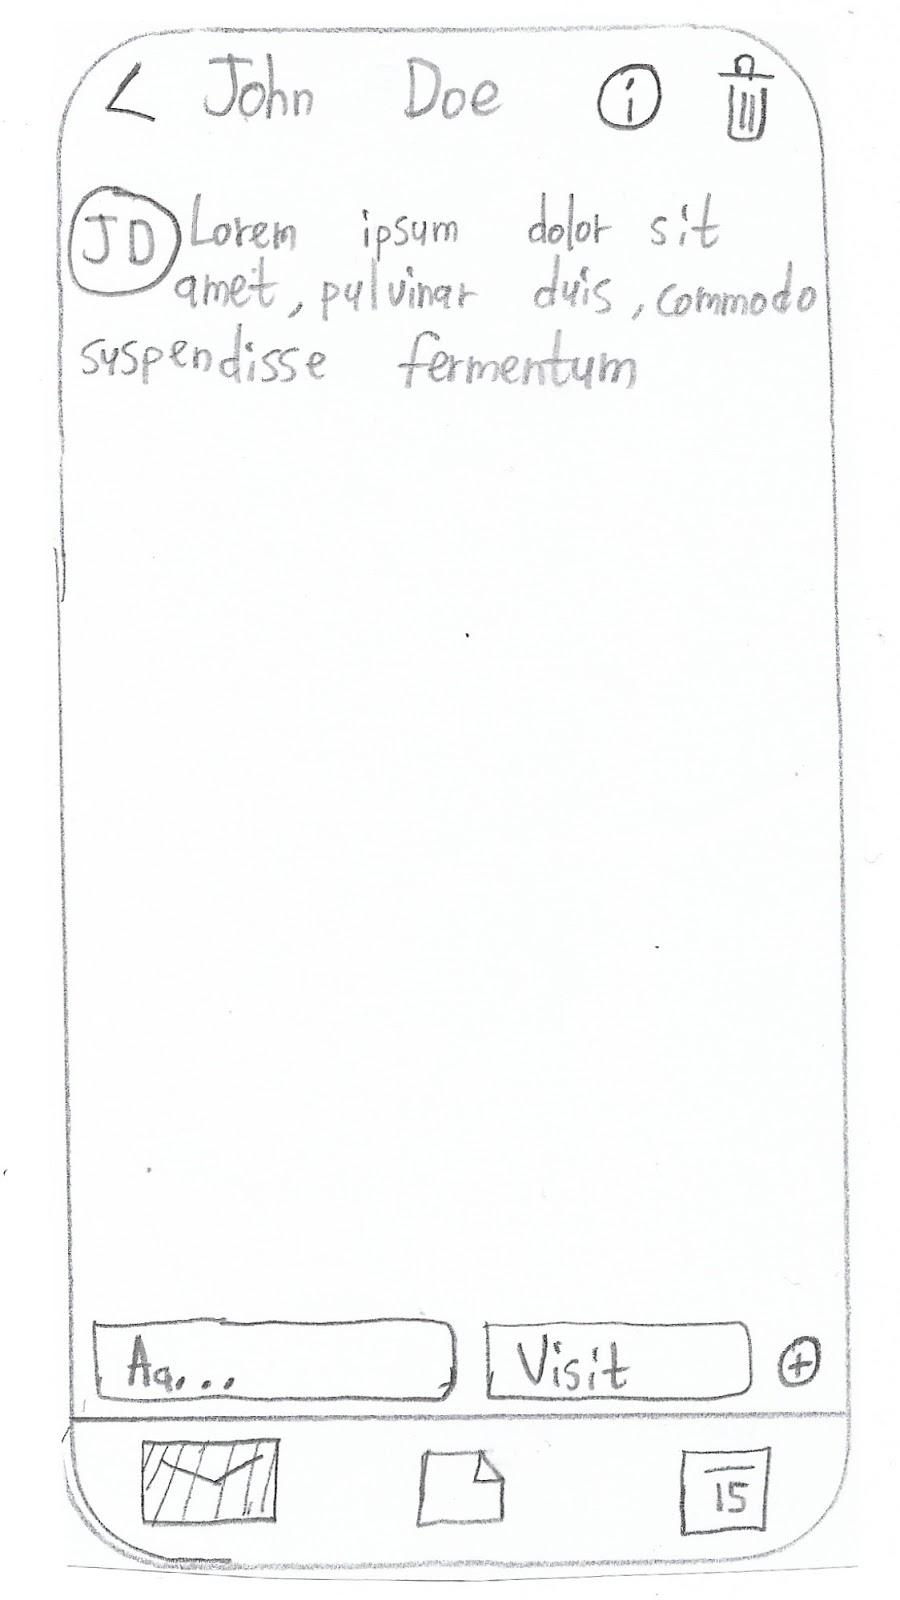 John Doe i
JD Lorem ipsum dolor sit
amet, pulvinar duis, commodo
suspendisse fermentum
Aa... Visit +
15